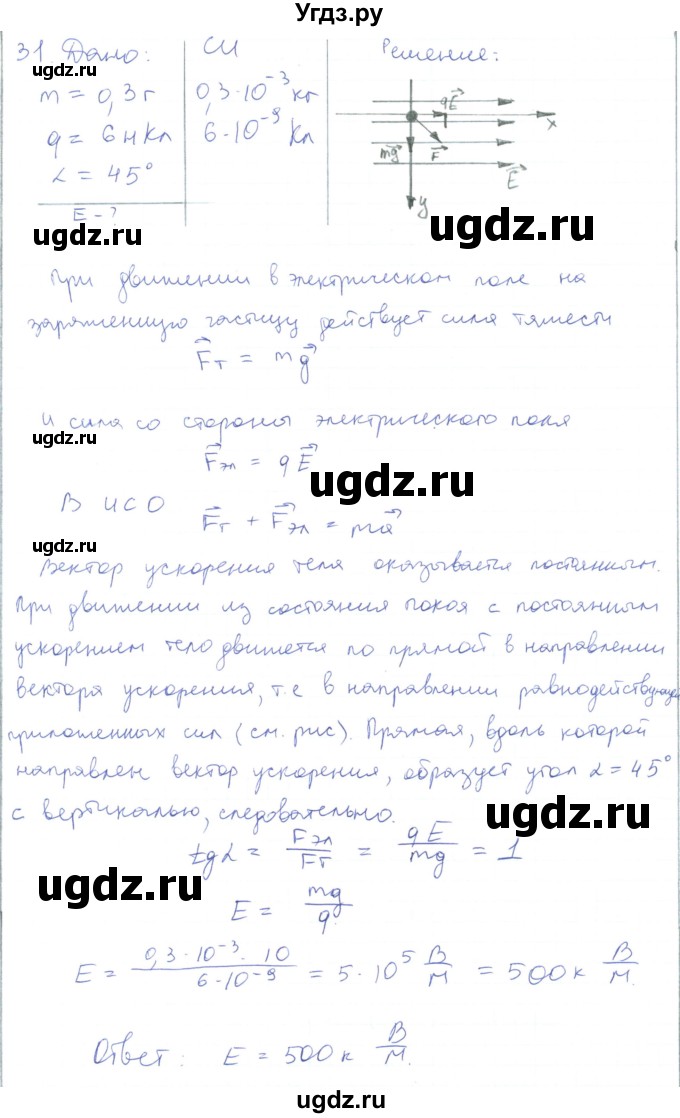 Угдз.ру
31 Дано: СИ Решение:
ugdz.ru
m = 0,3 г 0,3·10⁻³ кг
q = 6 нКл 6·10⁻⁹ Кл
α = 45°
E - ?
qE x
mg F E
y
ugdz.ru
ugdz.ru
При движении в электрическом поле на
заряженную частицу действует сила тяжести
Fт = mg
ugdz.ru
И сила со стороны электрического поля
ugdz.ru
Fэл = qE
ugdz.ru
В ИСО Fт + Fэл = ma
ugdz.ru
Вектор ускорения тела оказывается постоянным.
При движении из состояния покоя с постоянным
ускорением тело движется по прямой в направлении
ugdz.ru
вектора ускорения, т.е в направлении равнодействующей
приложенных сил (см. рис). Прямая, вдоль которой
ugdz.ru
направлен вектор ускорения, образует угол α = 45°
с вертикалью, следовательно.
ugdz.ru
tgα = Fэл/Fт = qE/mg = 1
ugdz.ru
E = mg/q
E = 0,3·10⁻³·10/6·10⁻⁹ = 5·10⁵ В/м = 500к В/м.
Ответ: E = 500к В/м.
ugdz.ru
ugdz.ru